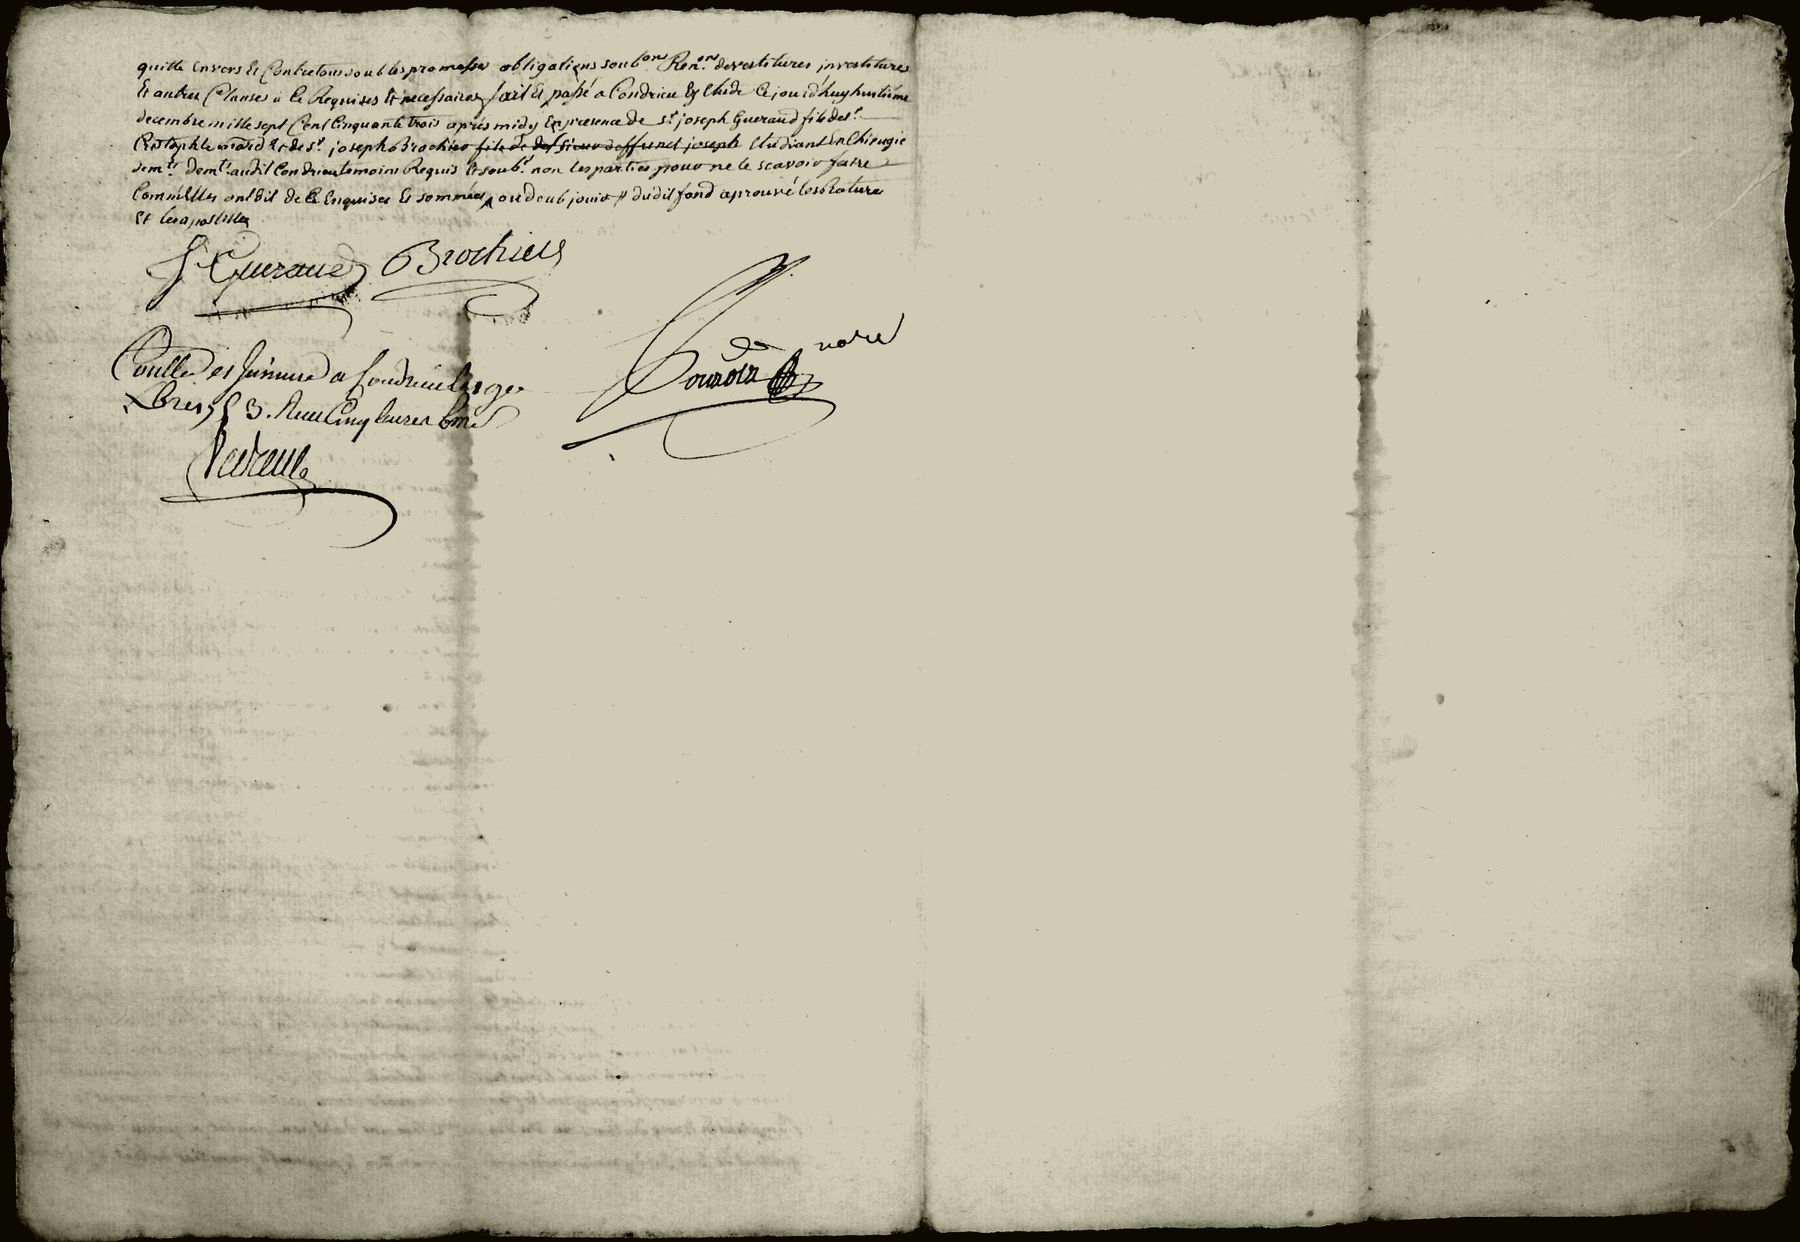 quitte Envers Et Contre tous soub les promesses obligations soub.on Ren.on devestitures investitures
Et autres Clauses à Ce Requises Et necessaires fait Et passé a Condrieu Estude Ce jourd'huy huitième
decembre mille sept Cent Cinquante trois après midy En presence de s.r joseph Gueraud fils de s.r
Cristophle marchd Et de s.r joseph Brochier fils de deffunct joseph Etudiant En Chirugie
dem.t audit Condrieu temoins Requis Et soub.s non les parties pour ne le scavoir faire
Comm'elles ont dit de Ce Enquises Et sommées ou doub jouir # dudit fond aprouvé les Rature
Et les apostilles
J. Gueraud Brochier
Conllé et Insinué a Condrieu
1753. Receu Cinq livres
nore